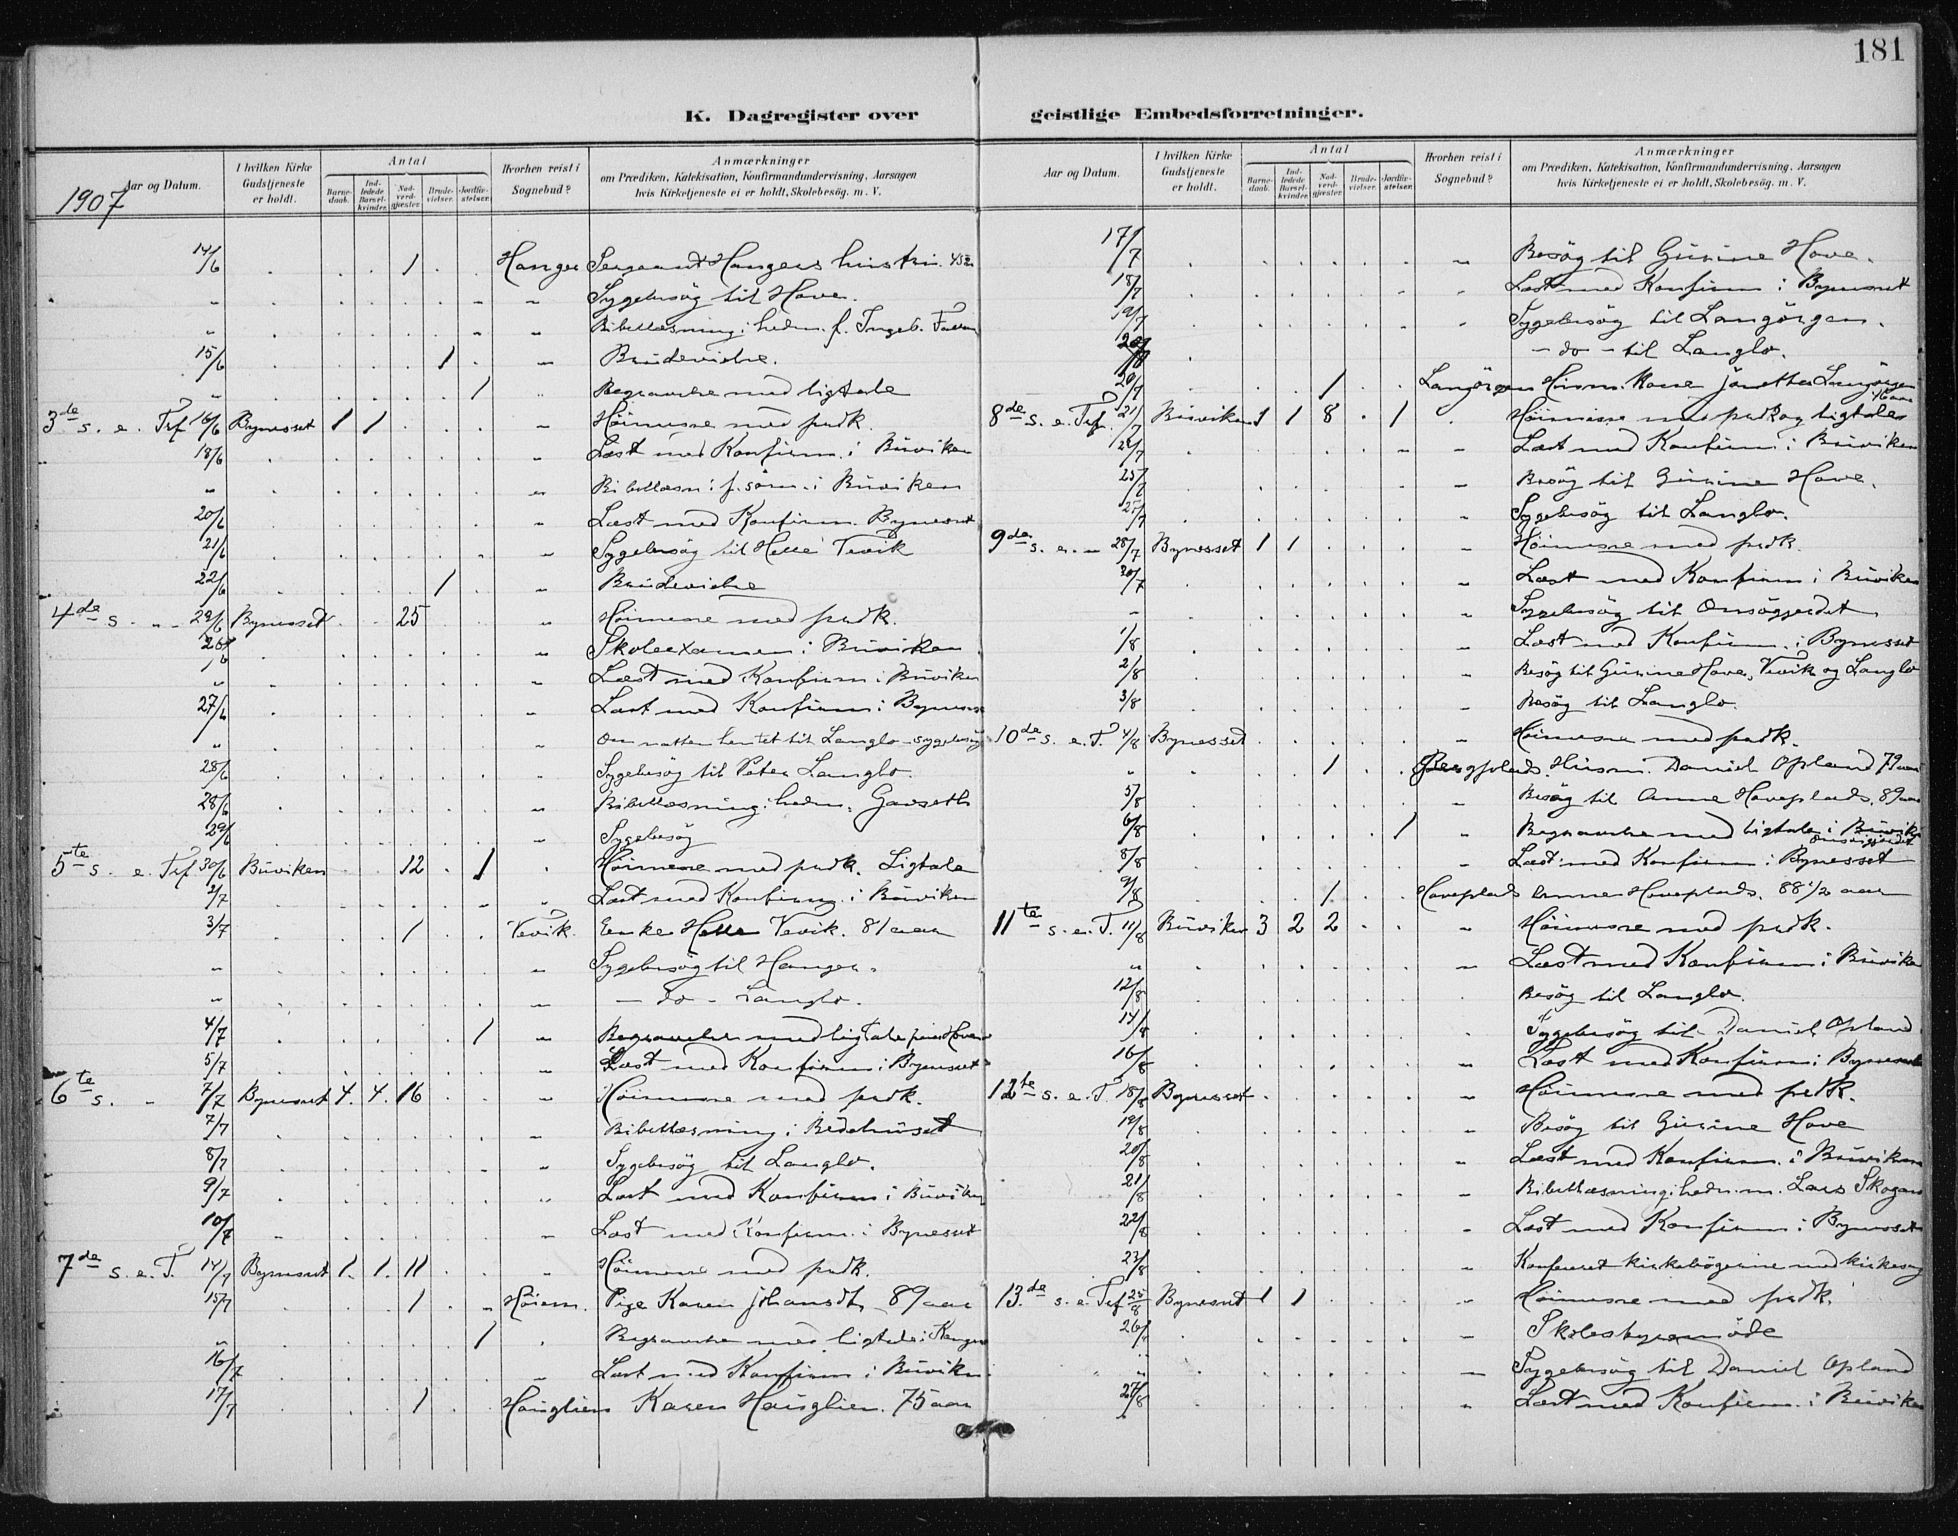 181
K. Dagregister over geistlige Embedsforretninger.
Aar og Datum. I hvilken Kirke Gudstjeneste er holdt. Antal Barnedaab. Indledede Barselkvinder. Nadverdgjester. Brudevielser. Jordfæstelser. Hvorhen reist i Sognebud? Anmærkninger om Prædiken, Katekisation, Konfirmandundervisning, Aarsagen hvis Kirketjeneste ei er holdt, Skolebesøg. m. V.
1907
14/6 1 Hanger Sergeant Hangers hustru
" Sygebesøg til Hove.
" Bibellæsning i hedn. f. Ingeb.
15/6 1 " Brudevielse.
" 1 Begravelse med ligtale
3de s. e. Trf 16/6 Bynesset 1 1 " Høimesse med prdk.
18/6 " Læst med Konfirm. i Buviken
" Bibellæsn. i f. søm. i Buviken
20/6 " Læst med Konfirm. Bynesset
21/6 " Sygebesøg til Helle Tevik
22/6 1 " Brudevielse
4de s. " " Bynesset 25 " Høimesse med prdk.
Skoleexamen i Buviken
" " Læst med Konfirm i Buviken
27/6 " Læst med Konfirm i Bynesset
" " Om natten hentet til Langlo - sygebesøg
28/6 Sygebesøg til Peter Langlo.
28/6 " Bibellæsning i hedn. Gavseth
29/6 " Sygebesøg
5te s. e. Trf 30/6 Buviken 12 1 Høimesse med prdk. Ligtale
2/7 " Læst med Konfirm i Buviken
3/7 1 Tevik. Enke Helle Tevik. 81 aar
" " Sygebesøg til Hanger.
" " - do - Langlo.
4/7 1 " Begravelse med ligtale
5/7 " Læst med Konfirm i Bynesset
6te s. " 7/7 Bynesset 4. 4. 16 " Høimesse med prdk.
7/7 " Bibellæsning i Bedehuset
8/7 " Sygebesøg til Langlo.
9/7 " Læst med Konfirm i Buviken
10/7 " Læst med Konfirm. i Bynesset
7de s. e. T. 14/7 Bynesset 1. 1. 11 " Høimesse med prdk.
15/7 1 Høiem. Pige Karen Johansdt. 89 aar
" 1 Begravelse med ligtale
16/7 " Læst med Konfirm i Buviken
17/7 1 Hauglien Karen Hauglien. 75 aar
Aar og Datum. I hvilken Kirke Gudstjeneste er holdt. Antal Barnedaab. Indledede Barselkvinder. Nadverdgjester. Brudevielser. Jordfæstelser. Hvorhen reist i Sognebud? Anmærkninger om Prædiken, Katekisation, Konfirmandundervisning, Aarsagen hvis Kirketjeneste ei er holdt, Skolebesøg. m. V.
17/7 " Besøg til Gurine Hove.
18/7 " Læst med Konfirm i Bynesset
19/7 " Sygebesøg til Langørgen.
- do - til Langlo.
20/7 1 Langørgen Husm. Kone Langørgen
8de s. e. Trf. 21/7 Buviken 1 1 8 1 Høimesse med prdk og ligtale
" Læst med Konfirm i Buviken
25/7 " Besøg til Gurine Hove.
25/7 " Sygebesøg til Langlo.
9de s. e. " 28/7 Bynesset 1 1 " Høimesse med prdk.
30/7 " Læst med Konfirm i Buviken
" " Sygebesøg til Onsøgjerdet
1/8 " Læst med Konfirm. i Bynesset
2/8 " Besøg til Gurine Hove, Tevik og Langlo
3/8 " Besøg til Langlo.
10de s. e. T. 4/8 Bynesset " Høimesse med prdk.
" 1 Husm. Daniel Opland 79 aar
5/8 " Besøg til Anne Hoveplads. 89 aar
6/8 1 " Begravelse med ligtale i Buviken
8/8 " Læst med Konfirm i Bynesset
9/8 1 Hoveplads Anne Hoveplads. 88 1/2 aar
11te s. e. T. 11/8 Buviken 3 2 2 " Høimesse med prdk.
" " Læst med Konfirm i Buviken
12/8 Besøg til Langlo.
14/8 Sygebesøg til Daniel Opland
16/8 " Læst med Konfirm i Bynesset
12te s. e. T. 18/8 Bynesset " Høimesse med prdk.
19/8 " Besøg til Gurine Hove
20/8 " Læst med Konfirm. i Buviken
21/8 " Bibellæsning i hedn. m. Lars
22/8 " Læst med Konfirm i Bynesset
23/8 " Konfereret kirkebøgerne med kirkesang
13de s. e. Trf 25/8 Bynesset 1 1 " Høimesse med prdk.
26/8 " Skolestyremøde
" " Sygebesøg til Daniel Opland
27/8 " Læst med Konfirm. i Buviken